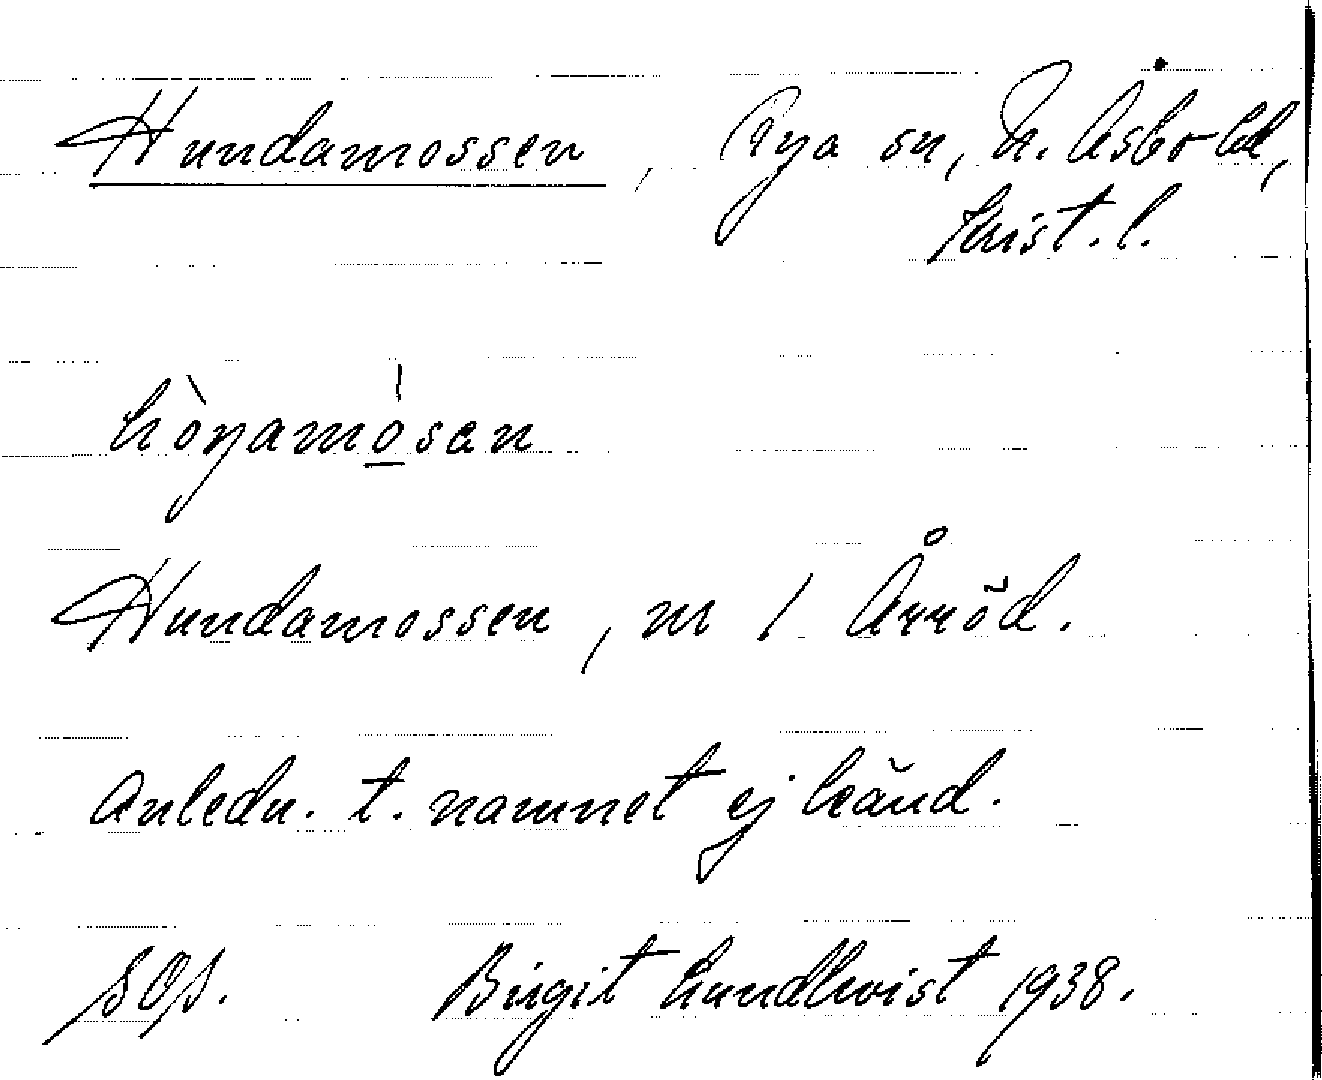 Hundamossen, Rya sn, N. Åsbo hd,
Krist. l.
hòŋamósan
Hundamossen, m / Årröd.
Anledn. t. namnet ej känd.
Birgit Lundkvist 1938.